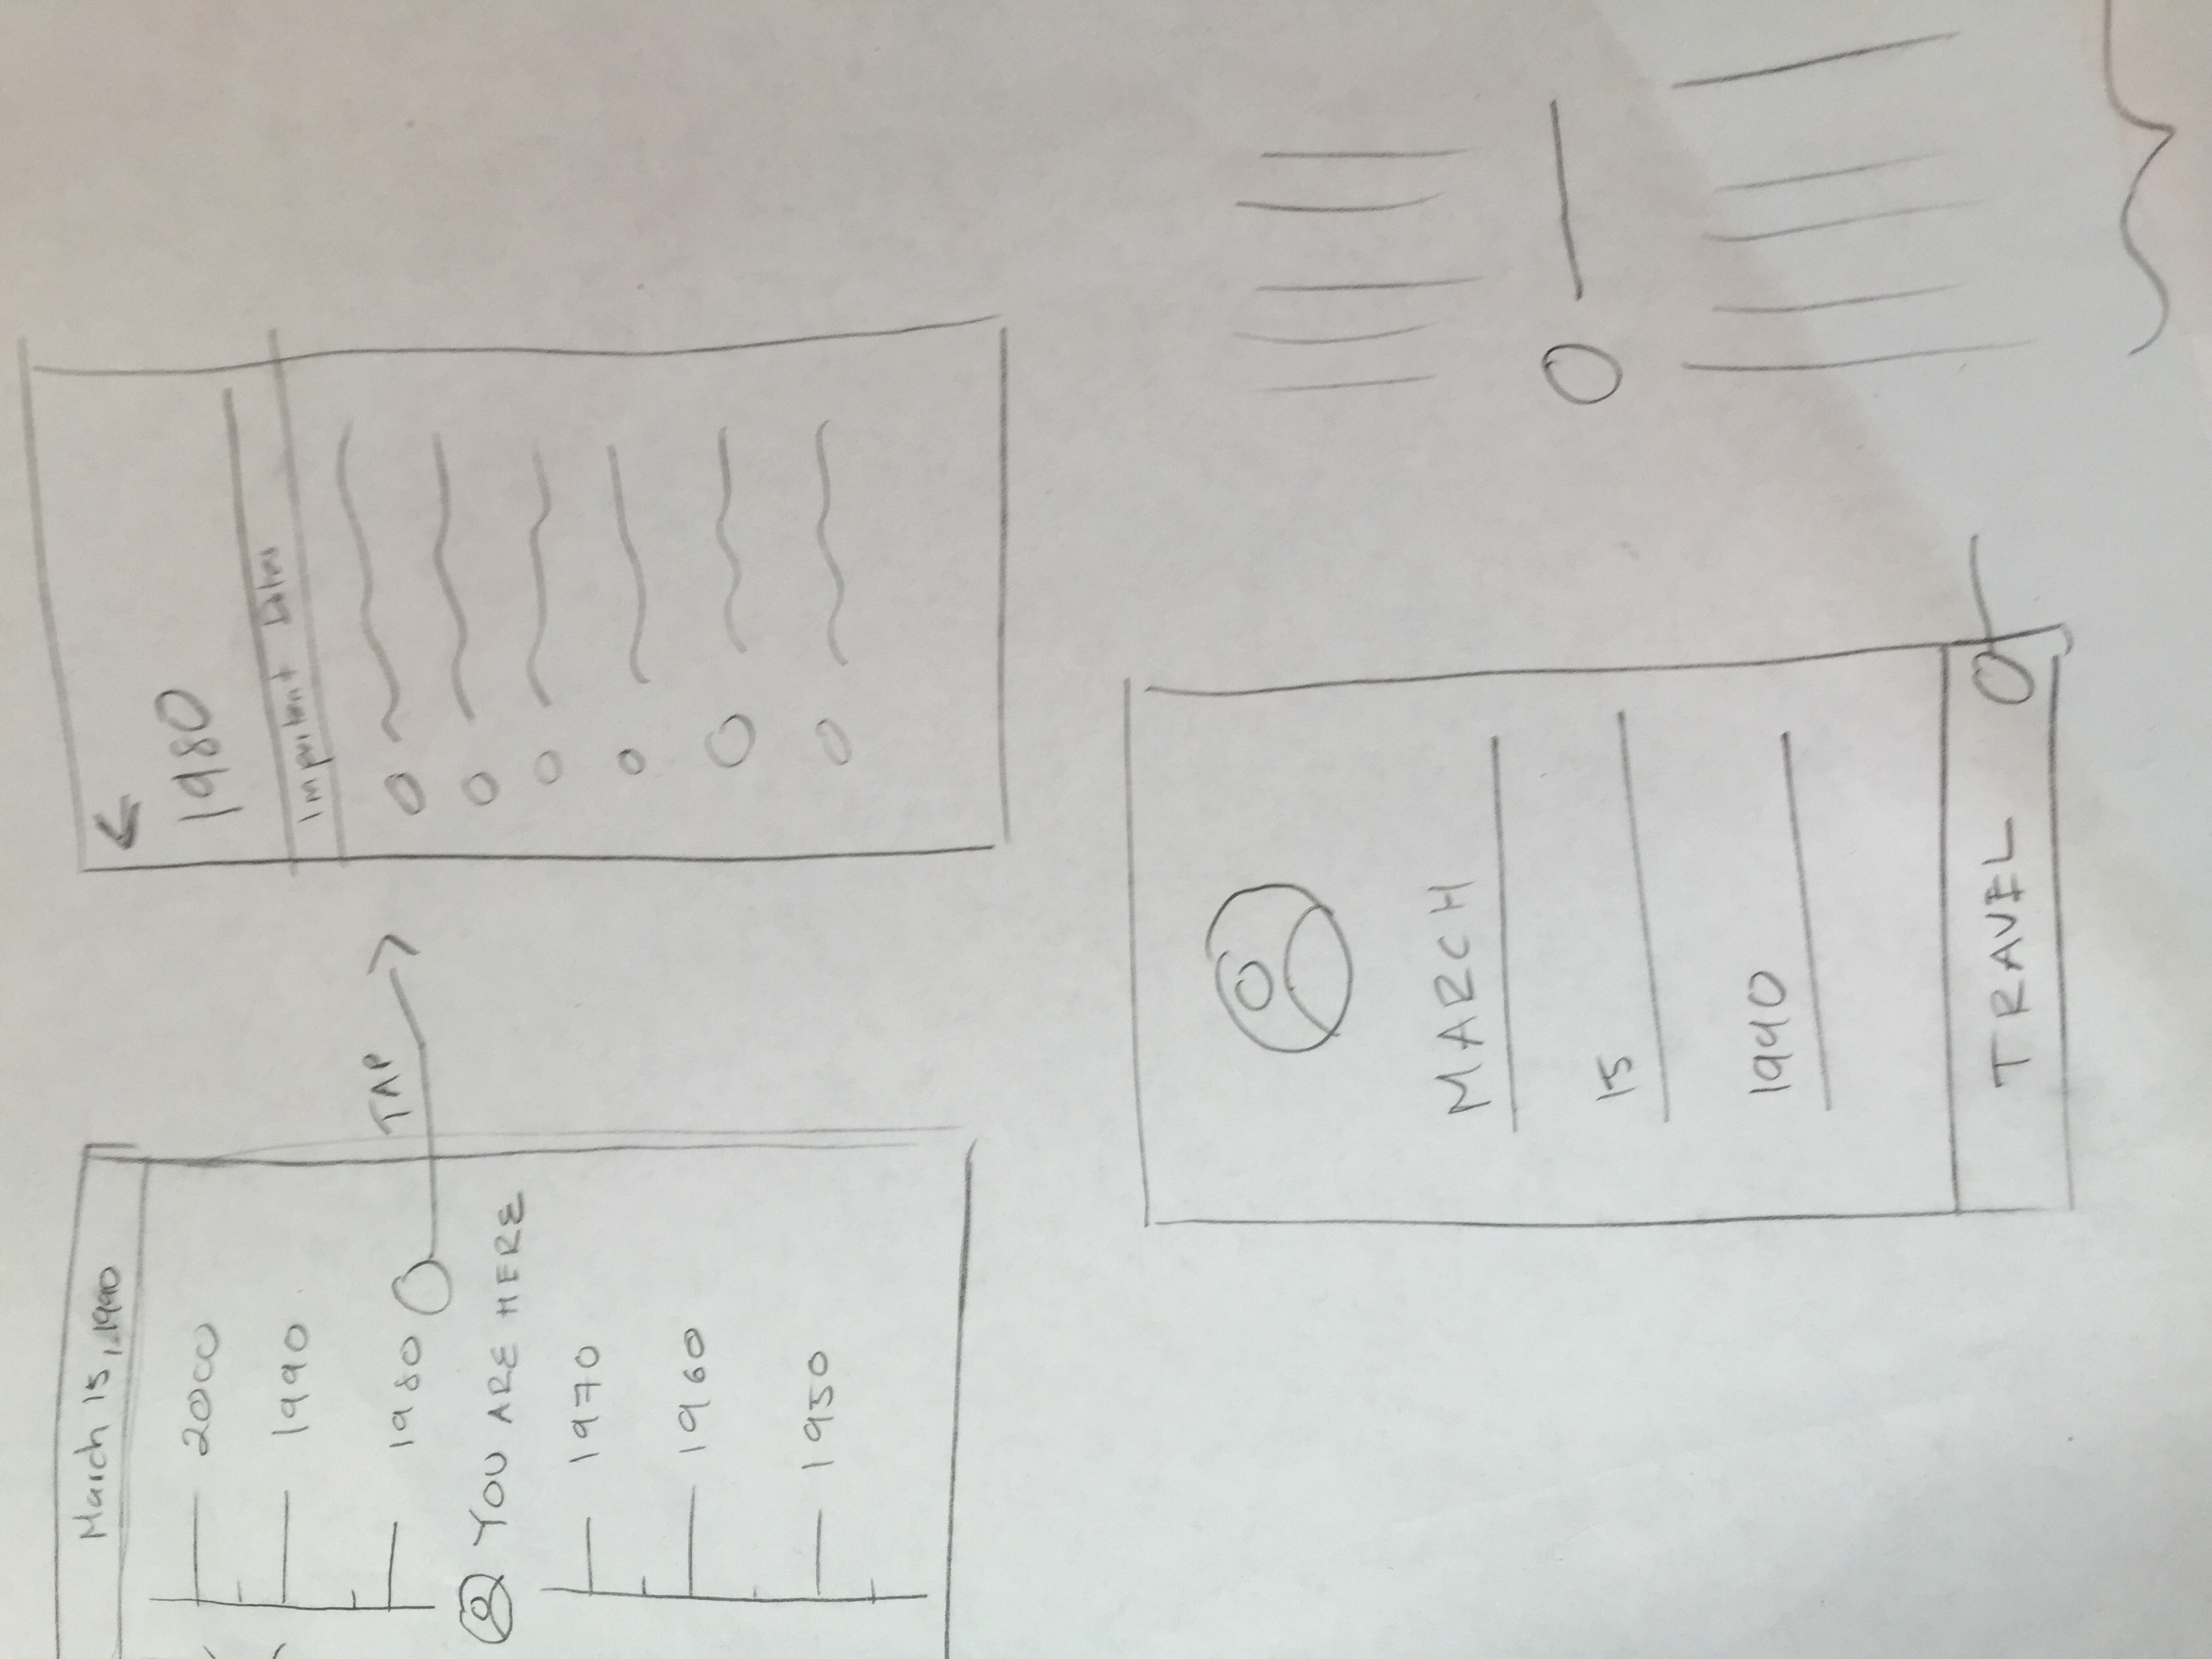 March 15, 1990
2000
1990
1980
TAP
YOU ARE HERE
1970
1960
1950
1980
Important Dates
MARCH
15
1990
TRAVEL